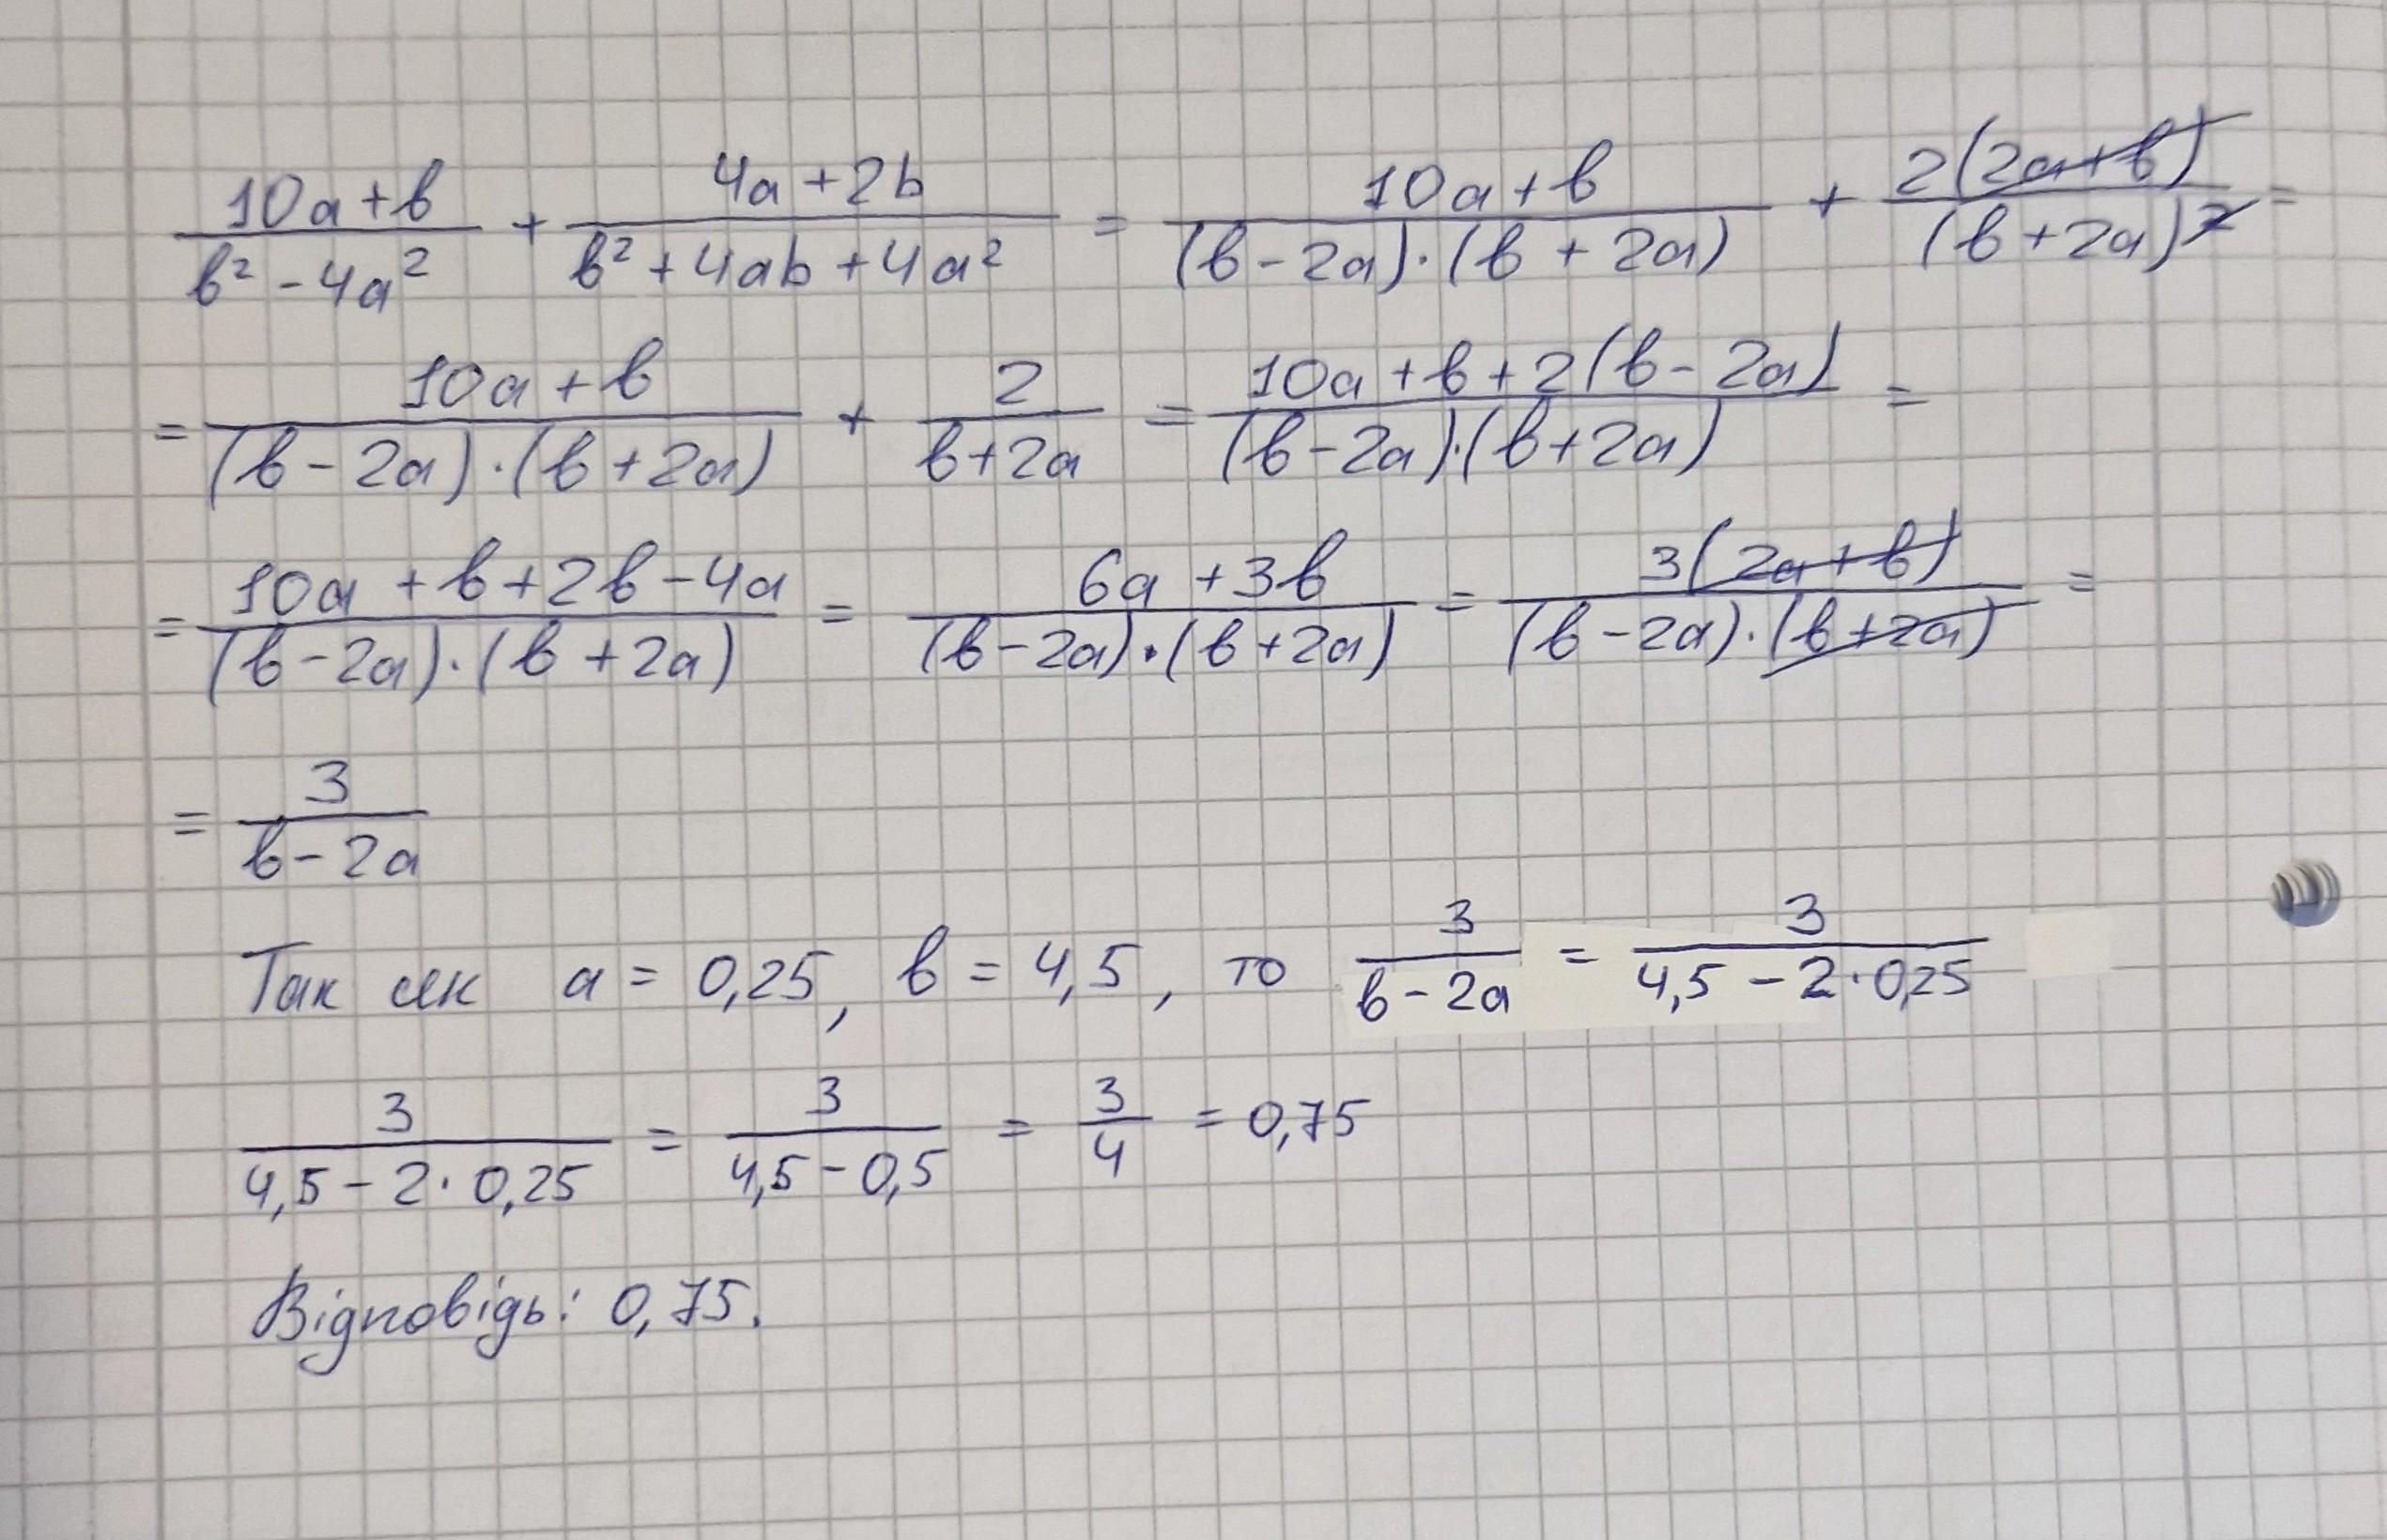 (10a+b)/(b²-4a²) + (4a+2b)/(b²+4ab+4a²) = (10a+b)/((b-2a)·(b+2a)) + 2(2a+b)/(b+2a)² =
= (10a+b)/((b-2a)·(b+2a)) + 2/(b+2a) = (10a+b+2(b-2a))/((b-2a)·(b+2a)) =
= (10a+b+2b-4a)/((b-2a)·(b+2a)) = (6a+3b)/((b-2a)·(b+2a)) = 3(2a+b)/((b-2a)·(b+2a)) =
= 3/(b-2a)
Так як a = 0,25, b = 4,5, то 3/(b-2a) = 3/(4,5-2·0,25)
3/(4,5-2·0,25) = 3/(4,5-0,5) = 3/4 = 0,75
Відповідь: 0,75.